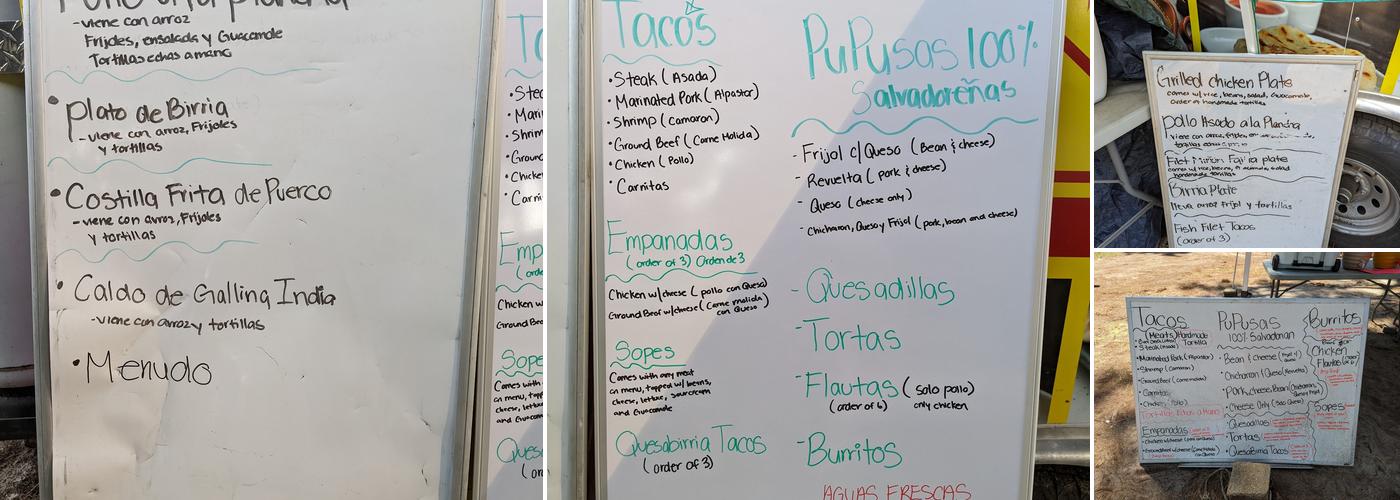 Pollo a la plancha
-viene con arroz
Frijoles, ensalada y Guacamole
Tortillas echas a mano
• plato de Birria
-viene con arroz, Frijoles
y tortillas
• Costilla Frita de Puerco
-viene con arroz, Frijoles
y tortillas
• Caldo de Gallina India
-viene con arroz y tortillas
• Menudo
Tacos
• Steak (Asada)
• Marinated Pork (Alpastor)
• Shrimp (camaron)
• Ground Beef (Carne Molida)
• Chicken (Pollo)
• Carnitas
Empanadas
(order of 3) Orden de 3
Chicken w/cheese (pollo con Queso)
Ground Beef w/cheese (Carne molida
con Queso)
Sopes
Comes with any meat
on menu, topped w/ beans,
cheese, lettuce, sourcream
and Guacamole
Quesabirria Tacos
(order of 3)
PuPusas 100%
Salvadoreñas
- Frijol c/Queso (Bean & cheese)
- Revuelta (pork & cheese)
- Queso (cheese only)
- Chicharon, Queso y Frijol (pork, bean and cheese)
- Quesadillas
- Tortas
- Flautas (solo pollo)
(order of 6) only chicken
- Burritos
AGUAS FRESCAS
Grilled chicken Plate
comes w/ rice, beans, salad, Guacamole,
order of handmade tortillas
pollo Asado a la Plancha
viene con arroz, frijoles,
tortillas
Filet Miñon Fajita plate
comes w/ rice, beans, salad
handmade tortillas
Birria Plate
lleva arroz frijol y tortillas
Fish Filet Tacos
(order of 3)
Tacos
(Meats) Handmade
Tortilla
• Steak (Asada)
• Marinated Pork (Alpastor)
• Shrimp (camaron)
• Ground Beef (carne molida)
• Carnitas
• Chicken (Pollo)
Tortillas Echas a Mano
Empanadas
• Chicken w/cheese (pollo con Queso)
• Ground Beef w/cheese (Carne Molida
con Queso)
PuPusas
100% Salvadorian
• Bean & cheese
• Chicharron & Queso (Revuelta)
• Pork, cheese, Bean
• Cheese Only (solo Queso)
• Quesadillas
• Tortas
• Quesabirria Tacos
Burritos
Chicken
Flautas
Sopes